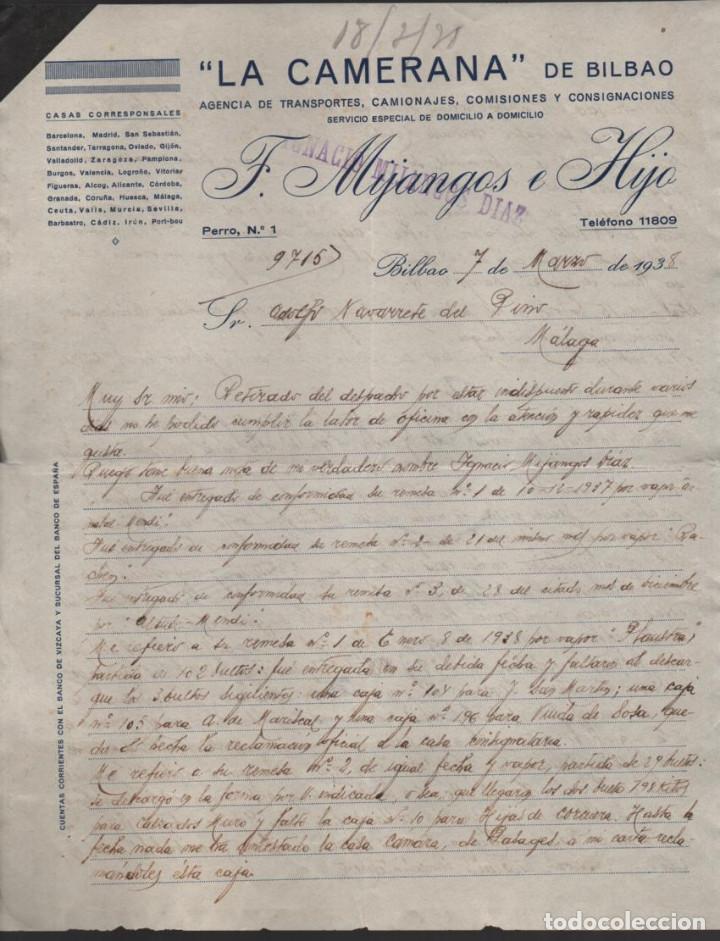 18/3/38
"LA CAMERANA" DE BILBAO
AGENCIA DE TRANSPORTES, CAMIONAJES, COMISIONES Y CONSIGNACIONES
SERVICIO ESPECIAL DE DOMICILIO A DOMICILIO
CASAS CORRESPONSALES
Barcelona, Madrid, San Sebastián,
Santander, Tarragona, Oviedo, Gijón,
Valladolid, Zaragoza, Pamplona,
Burgos, Valencia, Logroño, Vitoria,
Figueras, Alcoy, Alicante, Córdoba,
Granada, Coruña, Huesca, Málaga,
Ceuta, Valls, Murcia, Sevilla,
Barbastro, Cádiz, Irún, Port-bou
IGNACIO MIJANGOS DIAZ
F. Mijangos e Hijo
Perro, N.º 1
Teléfono 11809
9715
Bilbao 7 de Marzo de 1938
Sr. Adolfo Navarrete del Pino
Málaga
Muy Sr mio; Retirado del despacho por estar indispuesto durante varios
dias no he podido cumplir la labor de oficina en la atención y rapidez que me
gusta.
Ruego tome buena nota de mi verdadero nombre Ignacio Mijangos Diaz.
Fué entregado de conformidad su remesa nº 1 de 10-12-1937 por vapor
Mendi".
Fué entregado de conformidad su remesa nº 2 de 21 del mismo mes por vapor
Fué entregado de conformidad su remesa nº 3, de 28 del citado mes de diciembre
por Mendi".
Me refiero a su remesa nº 1 de Enero 8 de 1938 por vapor
partida de 102 bultos: fué entregada en su debida fecha y faltaron al descar-
gue los 3 bultos siguientes: una caja nº 104 para J. San Martin; una caja
nº 105 para A. de Mariscal y una caja nº 196 para Viuda de Sosa, que-
da hecha la reclamación oficial a la casa consignataria.
Me refiero a su remesa nº 2, de igual fecha y vapor, partida de 29 bultos:
se descargó en la forma por V. indicada, o sea, que llegaron los dos bultos 198 kilos
para y faltó la caja nº 10 para Hijas de Hasta la
fecha nada me ha contestado la casa Camara, de Pasages, a mi carta recla-
mándoles ésta caja.
CUENTAS CORRIENTES CON EL BANCO DE VIZCAYA Y SUCURSAL DEL BANCO DE ESPAÑA
todocoleccion.net